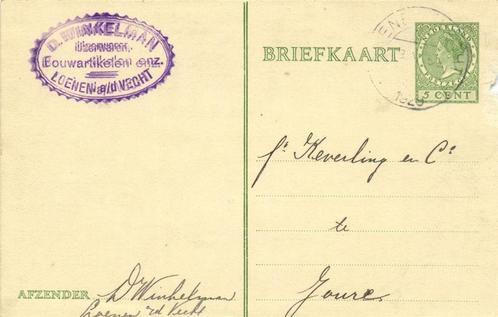 D. WINKELMAN
IJzerwaren,
Bouwartikelen enz.
LOENEN a/d VECHT
BRIEFKAART
5 CENT
fa Keverling en Co
te
Joure
AFZENDER
D Winkelman
Loenen a/d Vecht